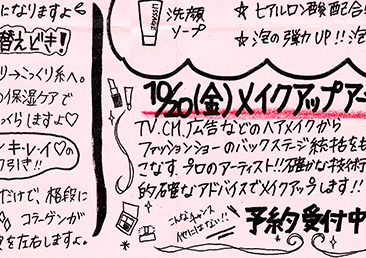 になりますよ
替えどき！
り→こっくり系へ。
の保湿ケアで
くらしますよ♡
ンキ・レ・イ♡の
引き!!
だけで、格段に
コラーゲンが
を左右しますよ。
洗顔
ソープ
☆ ヒアルロン酸配合!
☆ 泡の弾力UP!! 泡
10/20(金)メイクアップアー
TV.CM.広告などの人気メイクから
ファッションショーのバックステージ統括をも
こなす、プロのアーティスト!!確かな技術
的確なアドバイスでメイクアップします!!
こんなチャンス
他にはない!!
予約受付中